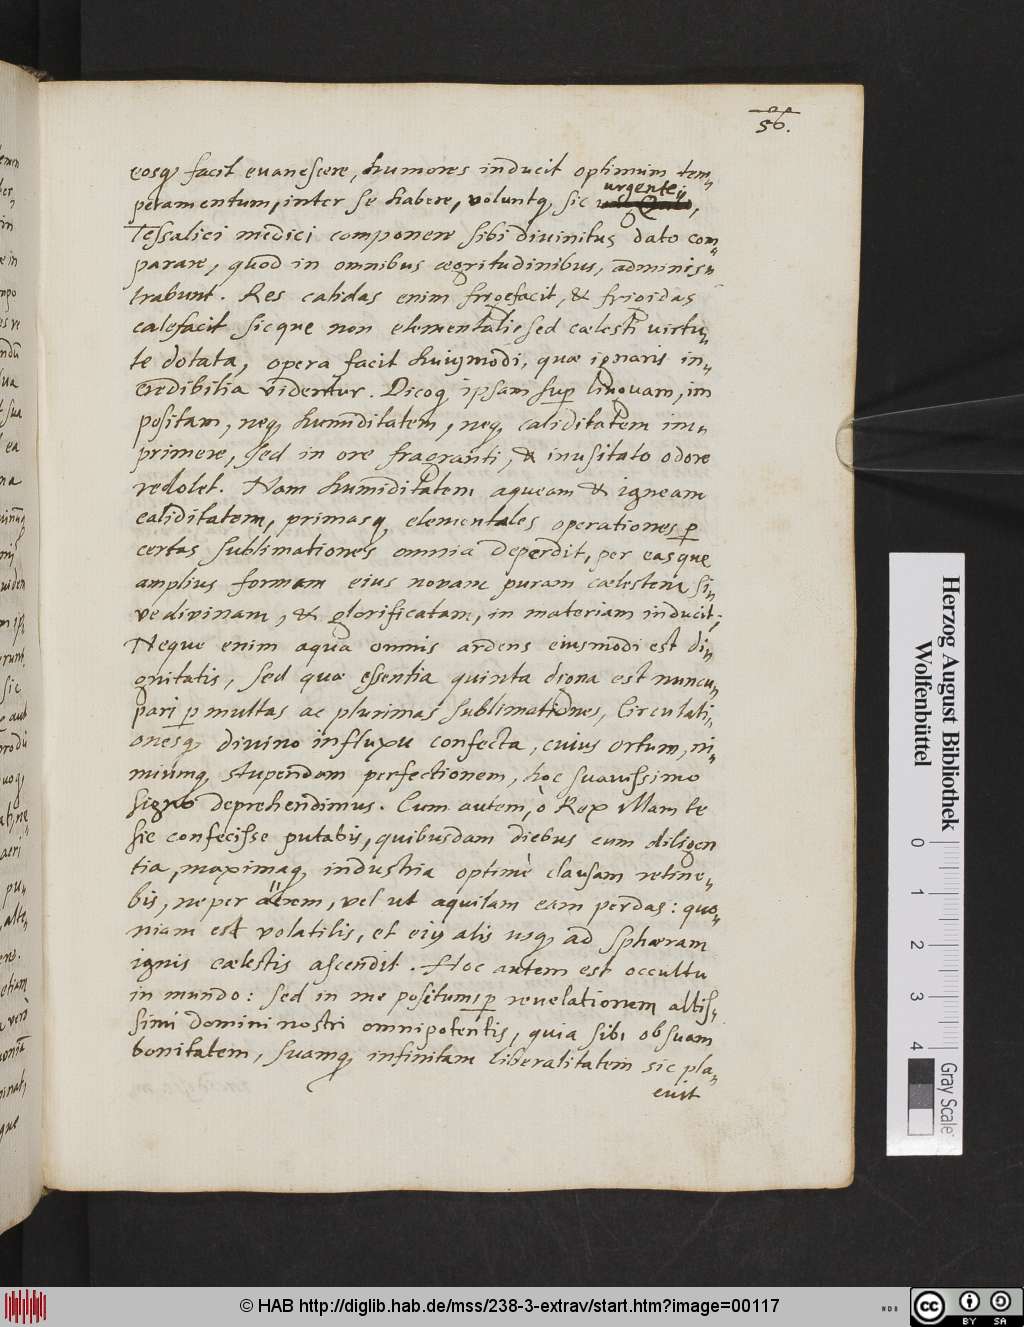 56.
eosq, facit evanescere, humores inducit optimum tem„
peramentum, inter se habere, voluntq, sic
urgente ij
Tessalici medici componere sibi divinitus dato com„
parare, quod in omnibus ægritudinibus, adminis„
trabunt. Res calidas enim frigefacit, & frigidas
calefacit sicque non elementali sed cœlesti virtu„
te dotata, opera facit huiusmodi, quæ ignaris in„
credibilia videntur. Dicoq, ipsam sup linguam, im
positam, neq, humiditatem, neq, caliditatem im„
primere, sed in ore fragranti, & inusitato odore
redolet. Nam humiditatem aqueam & igneam
caliditatem, primasq, elementales operationes p
certas sublimationes omnia deperdit, per easque
amplius formam eius novam puram cœlestem si„
ve divinam, & glorificatam, in materiam inducit;
Neque enim aqua omnis ardens eiusmodi est di„
gnitatis, sed quæ essentia quinta digna est nuncu„
pari p multas ac plurimas sublimationes, Circulati„
onesq, divino influxu confecta, cuius ortum, ni„
miumq, stupendam perfectionem, hoc suavissimo
signo deprehendimus. Cum autem, ò Rex illam te
sic confecisse putabis, quibusdam diebus cum diligen
tia, maximaq, industria optimè clausam retine„
bis, ne per äerem, vel ut aquilam eam perdas: quo„
niam est volatilis, et eiij alis usq, ad sphæram
ignis cælestis ascendit. Hoc autem est occultu
in mundo: sed in me positum, p revelationem altis„
simi domini nostri omnipotentis, quia sibi ob suam
bonitatem, suamq, infinitam liberalitatem sic pla„
cuit
Herzog August Bibliothek
Wolfenbüttel
0 1 2 3 4
Gray Scale
© HAB http://diglib.hab.de/mss/238-3-extrav/start.htm?image=00117
cc BY SA